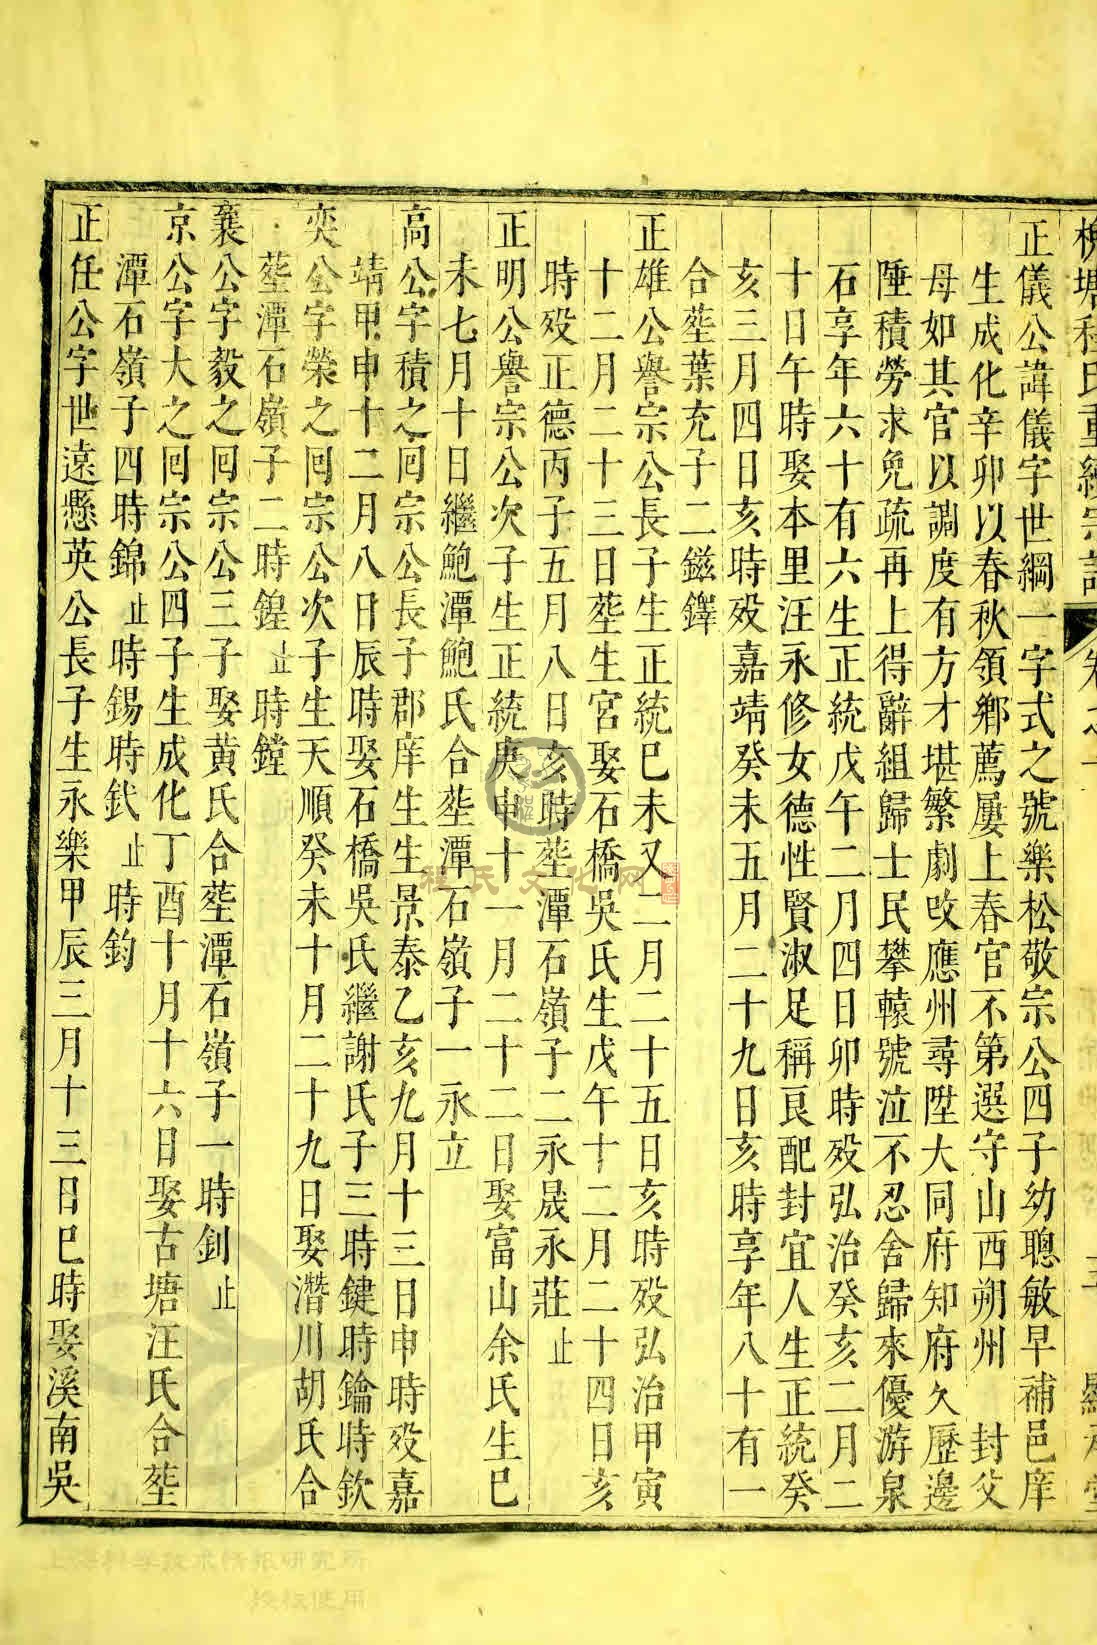 槐塘程氏重續宗譜 卷之
正儀公諱儀字世綱一字式之號樂松敬宗公四子幼聰敏早補邑庠
生成化辛卯以春秋領鄉薦屢上春官不第選守山西朔州 封父
母如其官以調度有方才堪繁劇改應州尋陞大同府知府久歷邊
陲積勞求免疏再上得辭組歸士民攀轅號泣不忍舍歸來優游泉
石享年六十有六生正統戊午二月四日卯時殁弘治癸亥二月二
十日午時娶本里汪永修女德性賢淑足稱良配封宜人生正統癸
亥三月四日亥時殁嘉靖癸未五月二十九日亥時享年八十有一
合塟葉充子二鎡鐸
正雄公譽宗公長子生正統巳未又二月二十五日亥時殁弘治甲寅
十二月二十三日塟生宮娶石橋吳氏生戊午十二月二十四日亥
時殁正德丙子五月八日亥時塟潭石嶺子二永晟永莊止
正明公譽宗公次子生正統庚申十一月二十二日娶富山余氏生巳
未七月十日繼鮑潭鮑氏合塟潭石嶺子一永立
高公字積之囘宗公長子郡庠生生景泰乙亥九月十三日申時殁嘉
靖甲申十二月八日辰時娶石橋吳氏繼謝氏子三時鍵時鑰時欽
奕公字榮之囘宗公次子生天順癸未十月二十九日娶潛川胡氏合
塟潭石嶺子二時鍠止時鏜
襄公字毅之囘宗公三子娶黃氏合塟潭石嶺子一時釗止
京公字大之囘宗公四子生成化丁酉十月十六日娶古塘汪氏合塟
潭石嶺子四時錦止時錫時鈇止時鈞
正任公字世遠懸英公長子生永樂甲辰三月十三日巳時娶溪南吳
程氏文化网
上海科学技术情报研究所
授权使用